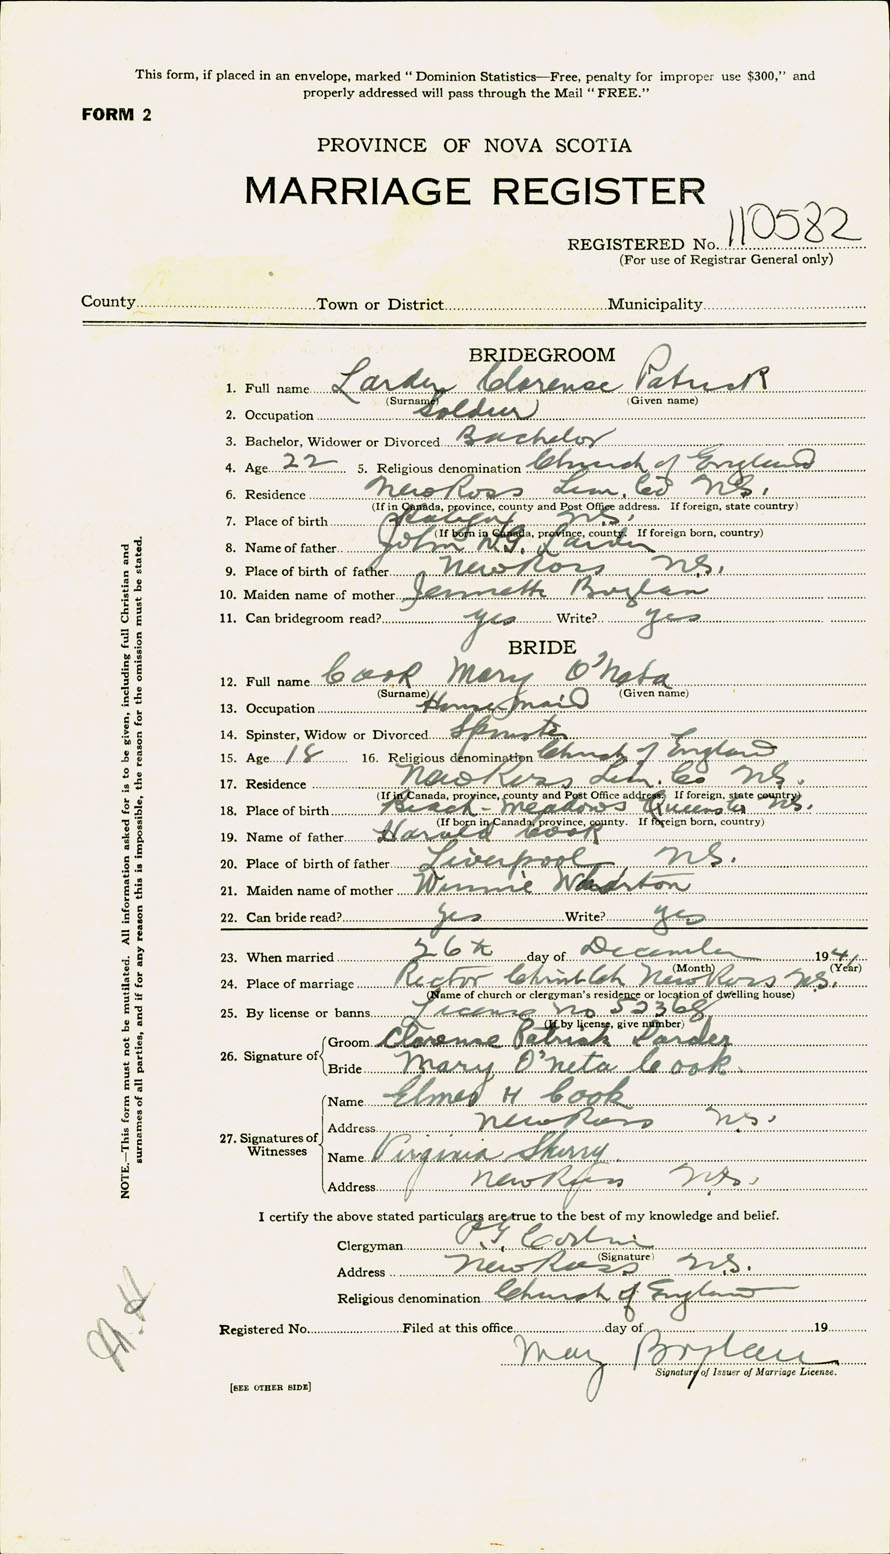 This form, if placed in an envelope, marked “ Dominion Statistics—Free, penalty for improper use $300,” and
properly addressed will pass through the Mail “ FREE.”
FORM 2
PROVINCE OF NOVA SCOTIA
MARRIAGE REGISTER
REGISTERED No. 110582
(For use of Registrar General only)
County Town or District Municipality
BRIDEGROOM
1. Full name Larder Clarense Patrick
(Surname) (Given name)
2. Occupation Soldier
3. Bachelor, Widower or Divorced Bachelor
4. Age 22 5. Religious denomination Church of England
6. Residence New Ross Lun. Co N.S.
(If in Canada, province, county and Post Office address. If foreign, state country)
7. Place of birth Halifax N.S.
(If born in Canada, province, county. If foreign born, country)
8. Name of father John W.G. Larder
9. Place of birth of father New Ross N.S.
10. Maiden name of mother Jennette Boylan
11. Can bridegroom read? yes Write? yes
BRIDE
12. Full name Cook Mary O'Neta
(Surname) (Given name)
13. Occupation House Maid
14. Spinster, Widow or Divorced Spinster
15. Age 18 16. Religious denomination Church of England
17. Residence New Ross Lun. Co N.S.
(If in Canada, province, county and Post Office address. If foreign, state country)
18. Place of birth Beach-Meadows Queens N.S.
(If born in Canada, province, county. If foreign born, country)
19. Name of father Harold Cook
20. Place of birth of father Liverpool N.S.
21. Maiden name of mother Winnie Wharton
22. Can bride read? yes Write? yes
23. When married 26th day of December 1941
(Month) (Year)
24. Place of marriage Rector Christ Ch New Ross N.S.
(Name of church or clergyman's residence or location of dwelling house)
25. By license or banns License no 52368
(If by license, give number)
26. Signature of Groom Clarense Patrick Larder
Bride Mary O'neta Cook
27. Signatures of Witnesses Name Elmer H Cook
Address New Ross N.S.
Name Virginia Skerry
Address New Ross N.S.
I certify the above stated particulars are true to the best of my knowledge and belief.
Clergyman
(Signature)
Address New Ross N.S.
Religious denomination Church of England
Registered No. Filed at this office day of 19
May Boylan
Signature of Issuer of Marriage License.
[SEE OTHER SIDE]
NOTE.—This form must not be mutilated. All information asked for is to be given, including full Christian and
surnames of all parties, and if for any reason this is impossible, the reason for the omission must be stated.